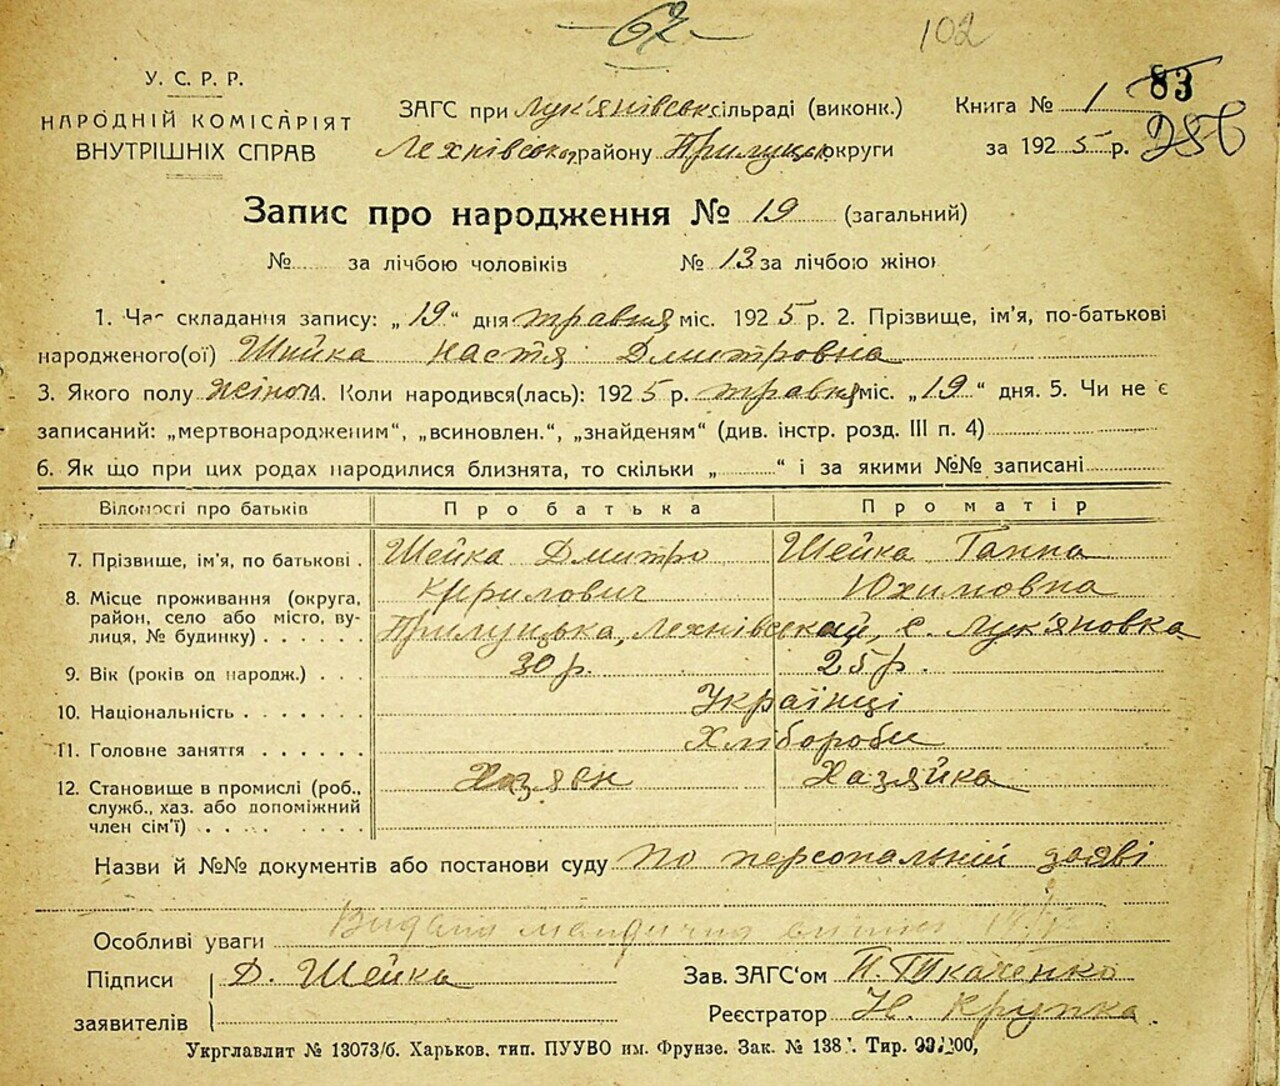 62
102
У. С. Р. Р.
НАРОДНІЙ КОМІСАРІЯТ
ВНУТРІШНІХ СПРАВ
ЗАГС при Лук'янівськ сільраді (виконк.)
Лехнівськ району Прилуцьк округи
Книга № 1 83
за 1925 р.
Запис про народження № 19 (загальний)
№ за лічбою чоловіків № 13 за лічбою жінок
1. Час складання запису: „19“ дня травня міс. 1925 р. 2. Прізвище, ім'я, по-батькові
народженого(ої) Шейка Настя Дмитровна
3. Якого полу жіноч. 4. Коли народився(лась): 1925 р. травня міс. „19“ дня. 5. Чи не є
записаний: „мертвонародженим“, „всиновлен.“, „знайденям“ (див. інстр. розд. III п. 4)
6. Як що при цих родах народилися близнята, то скільки „ “ і за якими №№ записані
Відомості про батьків Про батька Про матір
7. Прізвище, ім'я, по батькові . Шейка Дмитро Кирилович Шейка Ганна Юхимовна
8. Місце проживання (округа,
район, село або місто, ву-
лиця, № будинку) . . . . . . Прилуцька, Лехнівський, с. Лук'яновка
9. Вік (років од народж.) . . . 30 р. 25 р.
10. Національність . . . . . . . Українці
11. Головне заняття . . . . . . Хлібороби
12. Становище в промислі (роб., Хазяїн Хазяйка
служб., хаз. або допоміжний
член сім'ї) . . . . . . .
Назви й №№ документів або постанови суду по персональній заяві
Особливі уваги Видана
Підписи Д. Шейка Зав. ЗАГС'ом П. Ткаченко
заявителів Реєстратор Н. Крупка.
Укрглавлит № 13073/б. Харьков. тип. ПУУВО им. Фрунзе. Зак. № 138 Тир.